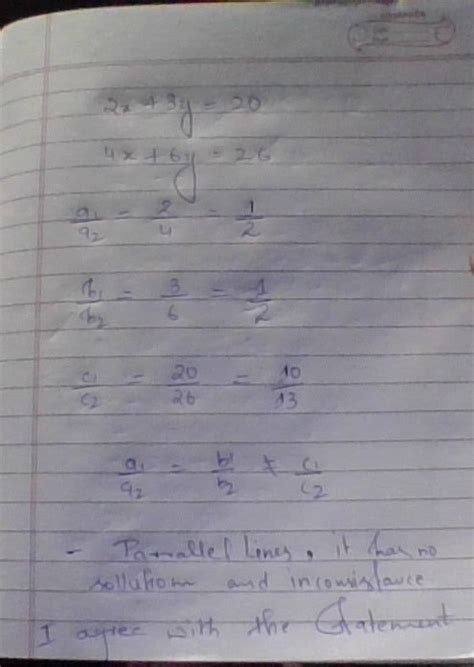 2x + 3y = 20
4x + 6y = 26
a1/a2 = 2/4 = 1/2
b1/b2 = 3/6 = 1/2
c1/c2 = 20/26 = 10/13
a1/a2 = b1/b2 ≠ c1/c2
- Parrallel lines, it has no
sollution and inconsistance
I agree with the Statement